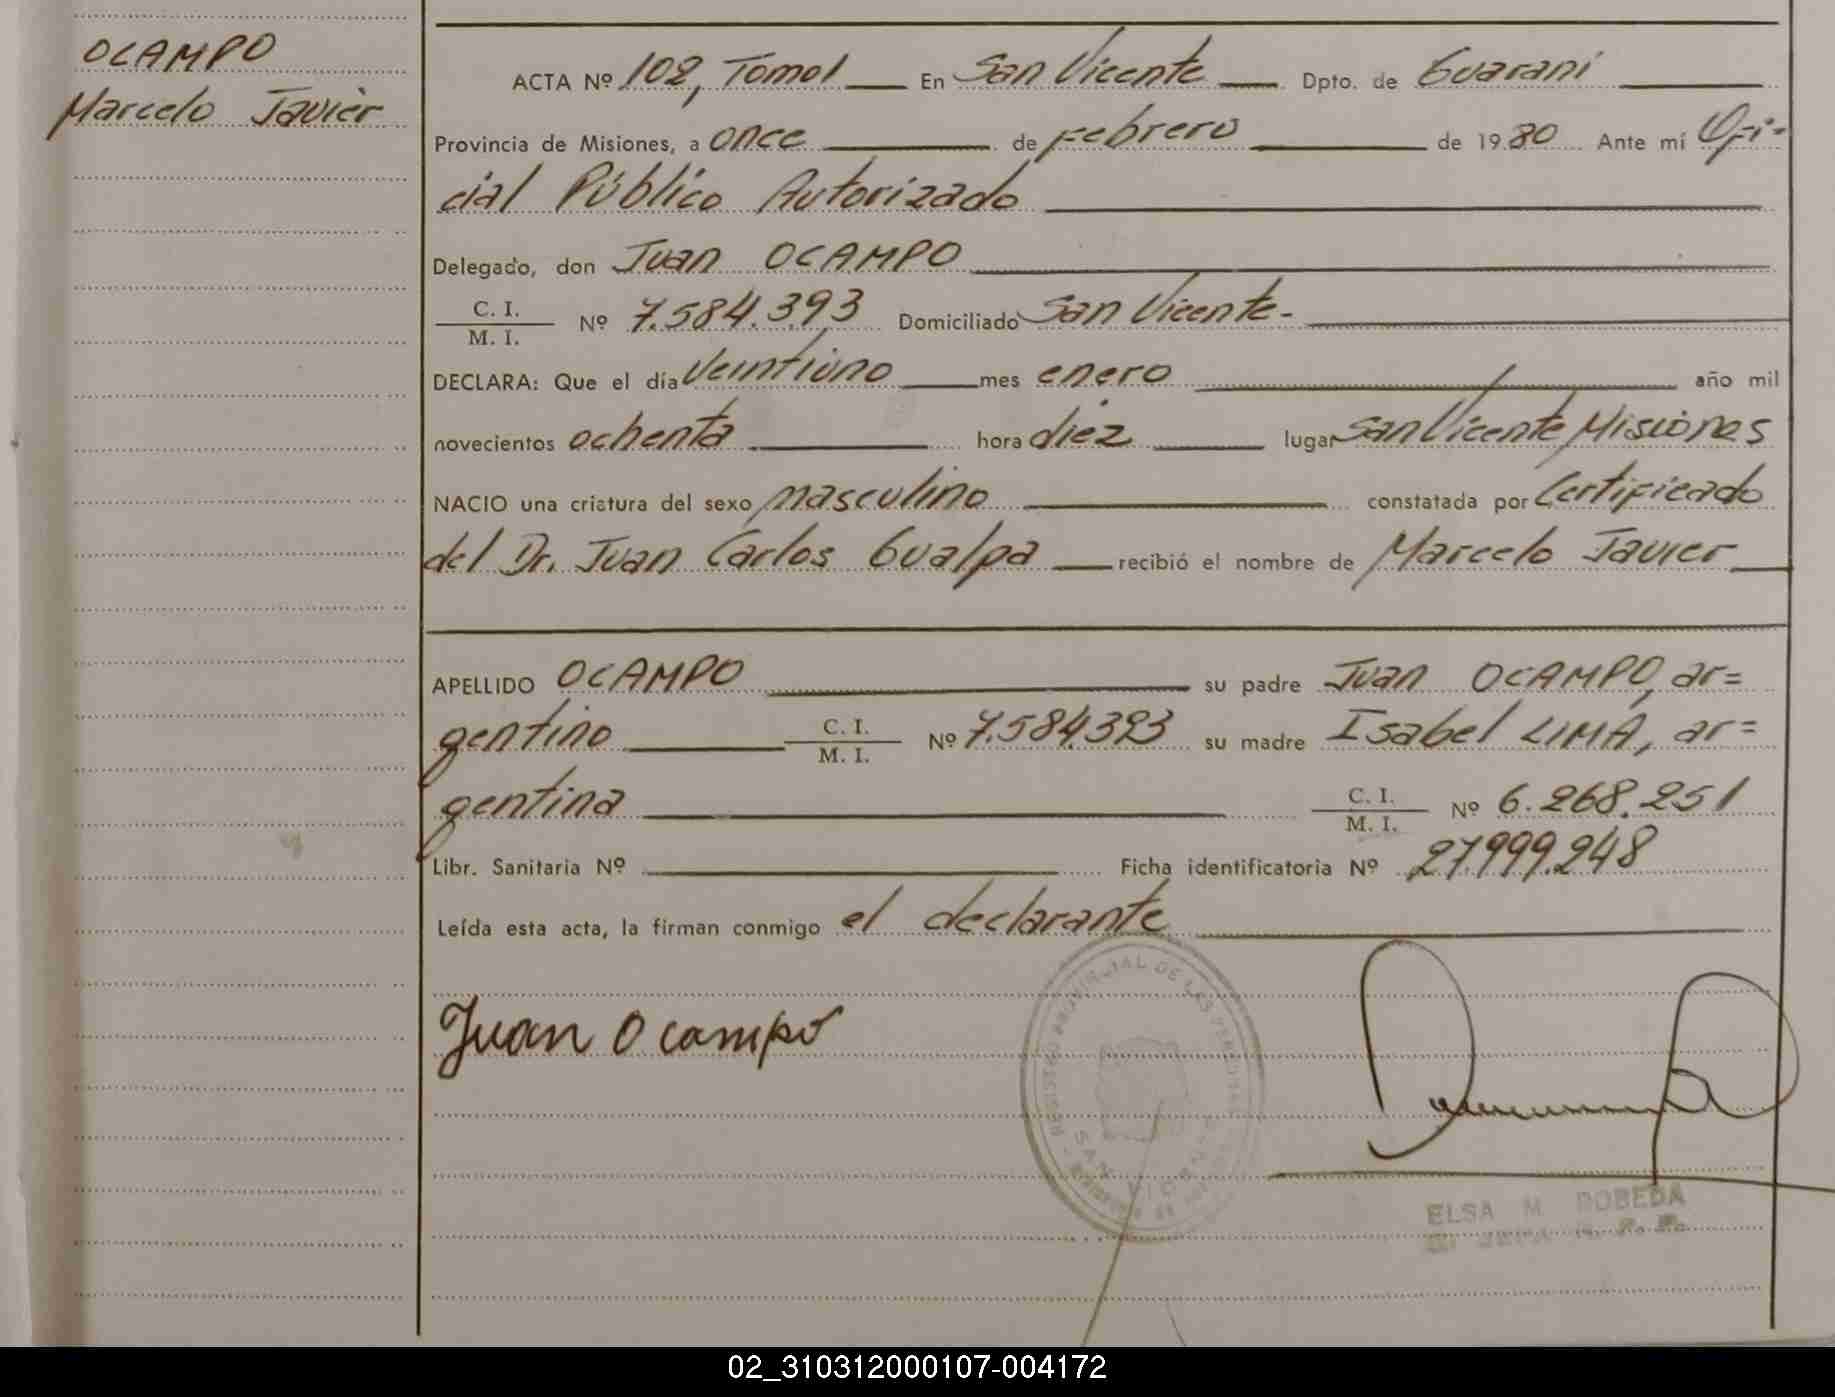 OCAMPO
Marcelo Javier
ACTA Nº 102, Tomo I En San Vicente Dpto. de Guaraní
Provincia de Misiones, a once de Febrero de 1980 Ante mí Ofi-
cial Público Autorizado
Delegado, don Juan OCAMPO
C. I.
M. I. Nº 7.584.393 Domiciliado San Vicente-
DECLARA: Que el día Veintiuno mes enero año mil
novecientos ochenta hora diez lugar San Vicente, Misiones
NACIO una criatura del sexo masculino constatada por Certificado
del Dr. Juan Carlos Gualpa recibió el nombre de Marcelo Javier
APELLIDO OCAMPO su padre Juan OCAMPO, ar=
gentino C. I. M. I. Nº 7.584.393 su madre Isabel LIMA, ar=
gentina C. I. M. I. Nº 6.268.251
Libr. Sanitaria Nº Ficha identificatoria Nº 27.999.248
Leída esta acta, la firman conmigo el declarante
Juan Ocampo
REGISTRO PROVINCIAL DE LAS PERSONAS
SAN VICENTE
ELSA M. BOBEDA
02_310312000107-004172